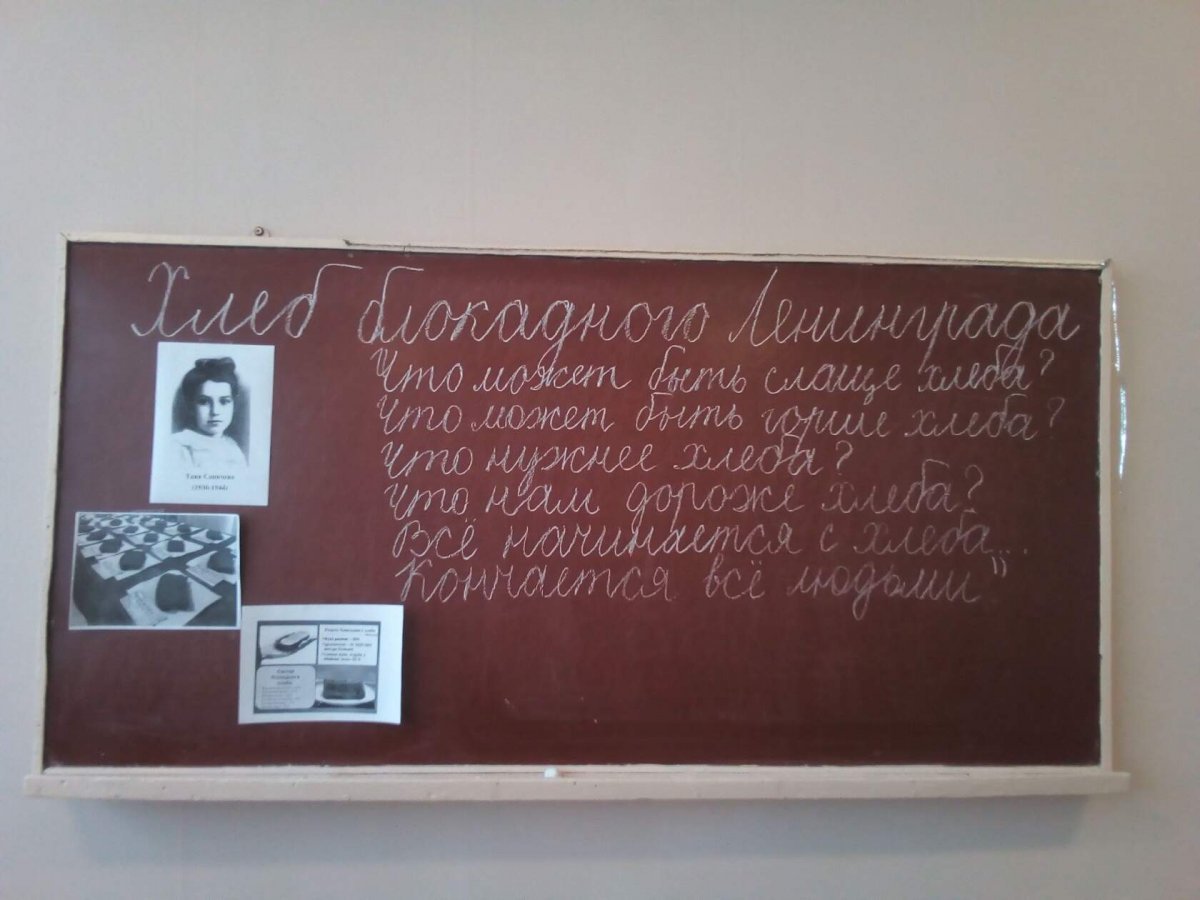 Хлеб блокадного Ленинграда
Что может быть слаще хлеба?
Что может быть горше хлеба?
Что нужнее хлеба?
Что нам дороже хлеба?
Всё начинается с хлеба...
Кончается всё людьми"
Таня Савичева
(1930-1944)